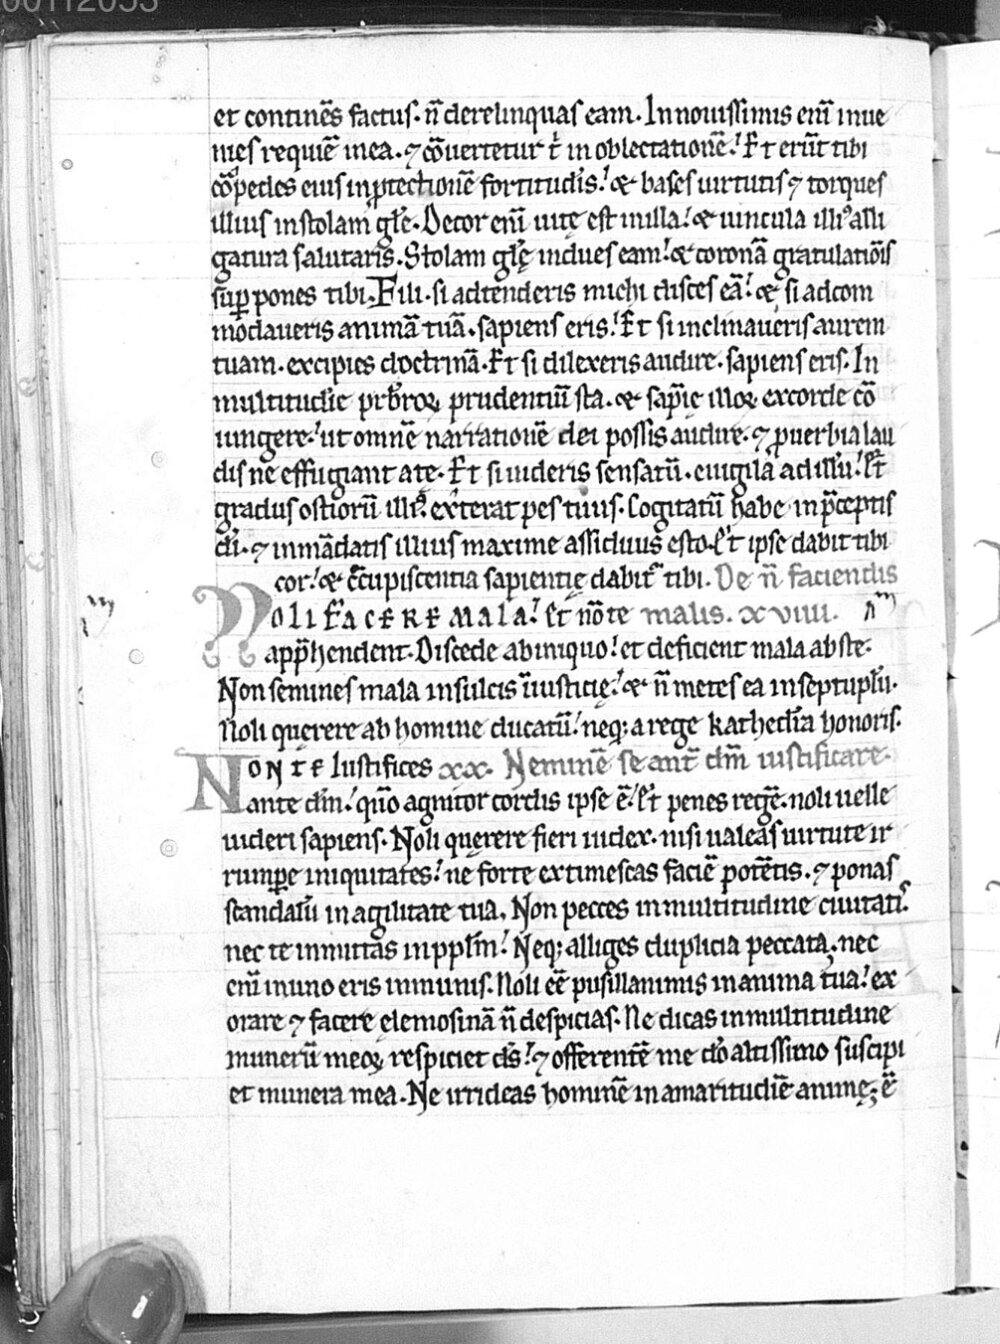 00112053
et continēs factus. n̄ derelinquas eam. In nouissimis eni͂ inue
nies requiē mea. ⁊ cōuertetur t̄ in oblectationē. Et erūt tibi
cōpedes eius in ꝓtectionē fortitudis. & bases uirtutis ⁊ torques
illius in stolam gl̄e. Decor eni͂ uitę est in illa. & uincula illiꝰ alli
gatura salutaris. Stolam gl̄ę indues eam. & coronā gratulatiōis
suꝑ pones tibi. Fili. si adtenderis michi disces eā. & si adcom
modaueris animā tuā. sapiens eris. Et si inclinaueris aurem
tuam. excipies doctrinā. Et si dilexeris audire. sapiens eris. In
multitudīe prb̄roꝝ prudentiū sta. & sapīę illoꝝ ex corde cō
iungere. ut omnē narrationē dei possis audire. ⁊ ꝓuerbia lau
dis ne effugiant a te. Et si uideris sensatū. euigila ad illū. Et
gradus ostiorū illiꝰ exterat pes tuus. Cogitatū habe in p̄ceptis
di͂. ⁊ in mādatis illius maxime assiduus esto. Et ipse dabit tibi
cor. & cc̄upiscentia sapientię dabit᷑ tibi. De n̄ faciendis
Noli facere mala. Et nō te malis. xviiii.
app̄hendent. Discede ab iniquo. et deficient mala abs te.
Non semines mala in sulcis īiusticię. & n̄ metes ea in septuplū.
Noli querere ab homine ducatū. neq; a rege kathedrā honoris.
Non te Iustifices xx. Neminē se ant̄ dm̄ iustificare.
ante dm̄. qm̄o agnitor cordis ipse ē. Et penes regē. noli uelle
uideri sapiens. Noli querere fieri iudex. nisi ualeas uirtute ir
rumꝑe iniquitates. ne forte extimescas faciē potētis. ⁊ ponas
scandalū in agilitate tua. Non pecces in multitudine ciuitatis.
nec te inmittas in ppl̄m. Neq; alliges duplicia peccata. nec
eni͂ in uno eris inmunis. Noli eē pusillanimis in anima tua. ex
orare ⁊ facere elemosinā n̄ despicias. Ne dicas in multitudine
munerū meoꝝ respiciet ds̄. ⁊ offerentē me dō altissimo suscipi
et munera mea. Ne irrideas hominē in amaritudīe animę; ē